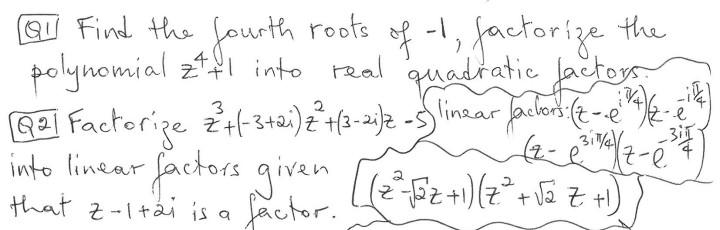 Q1 Find the fourth roots of -1, factorize the
polynomial z^4+1 into real quadratic factors.
Q2 Factorize z^3+(-3+2i)z^2+(3-2i)z-5
into linear factors given
that z-1+2i is a factor.
linear factors: (z-e^{iπ/4})(z-e^{-iπ/4})
(z-e^{3iπ/4})(z-e^{-3iπ/4})
(z^2-√2z+1)(z^2+√2z+1)